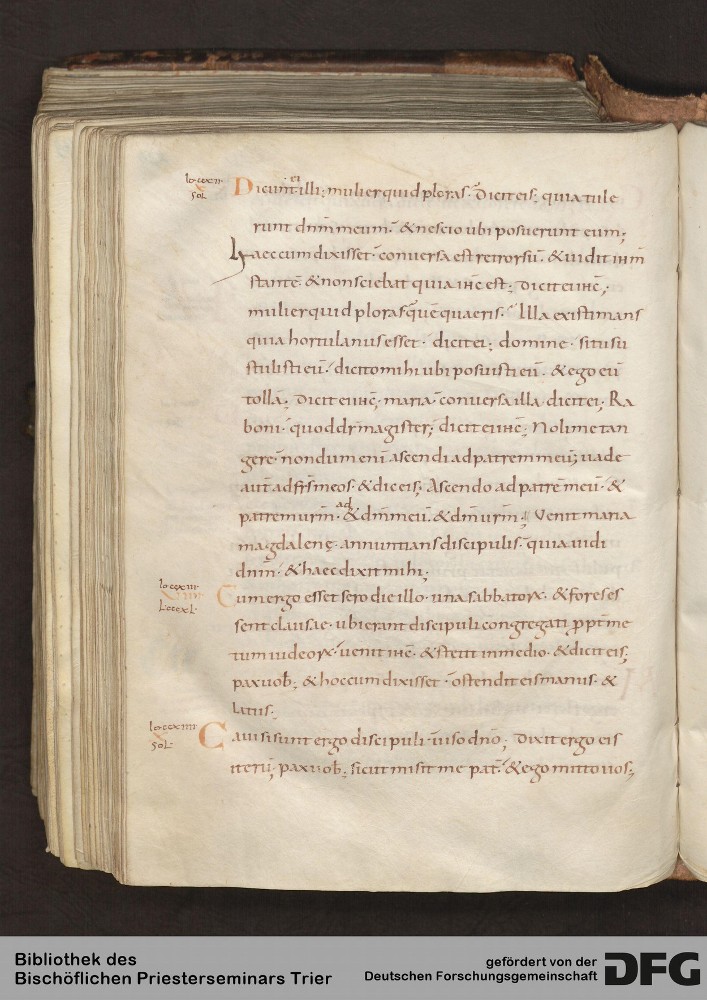 Io·ccxii·
x
SOL
Dicunt ei illi; mulier quid ploras· Dicit eis; quia tule
runt dnm̄ meum· & nescio ubi posuerunt eum;
haec cum dixisset· conversa est retrorsū· & vidit ihm̄
stantē· & non sciebat quia ihc̄ est; Dicit ei ihc̄;
mulier quid ploras· quē quaeris· Illa existimans
quia hortulanus esset· dicit ei; domine· si tu su
stulisti eū· dicito mihi ubi posuisti eū· & ego eū
tollā; Dicit ei ihc̄; maria· conversa illa dicit ei; Ra
boni· quod dr̄ magister; dicit ei ihc̄; Noli me tan
gere· nondum enī ascendi ad patrem meū; vade
autē ad frs̄ meos· & dic eis; Ascendo ad patrē meū· &
patrem vrm̄· ad & dm̄ meū· & dm̄ vrm̄; Venit maria
magdalenę· annuntians discipulis· quia vidi
dnm̄· & haec dixit mihi;
Io·ccxiii·
L·ccexl·
Cum ergo esset sero die illo· una sabbatorꝝ· & fores es
sent clausae· ubi erant discipuli congregati ꝓpt̄ me
tum iudeorꝝ· venit ihc̄· & stetit in medio· & dicit eis;
pax vob̄; & hoc cum dixisset· ostendit eis manus· &
latus;
Io·ccxiiii·
x
SOL·
Gavisi sunt ergo discipuli· viso dnō; Dixit ergo eis
iterū; pax vob̄; sicut misit me pat̄· & ego mitto vos;
Bibliothek des
Bischöflichen Priesterseminars Trier
gefördert von der
Deutschen Forschungsgemeinschaft
DFG